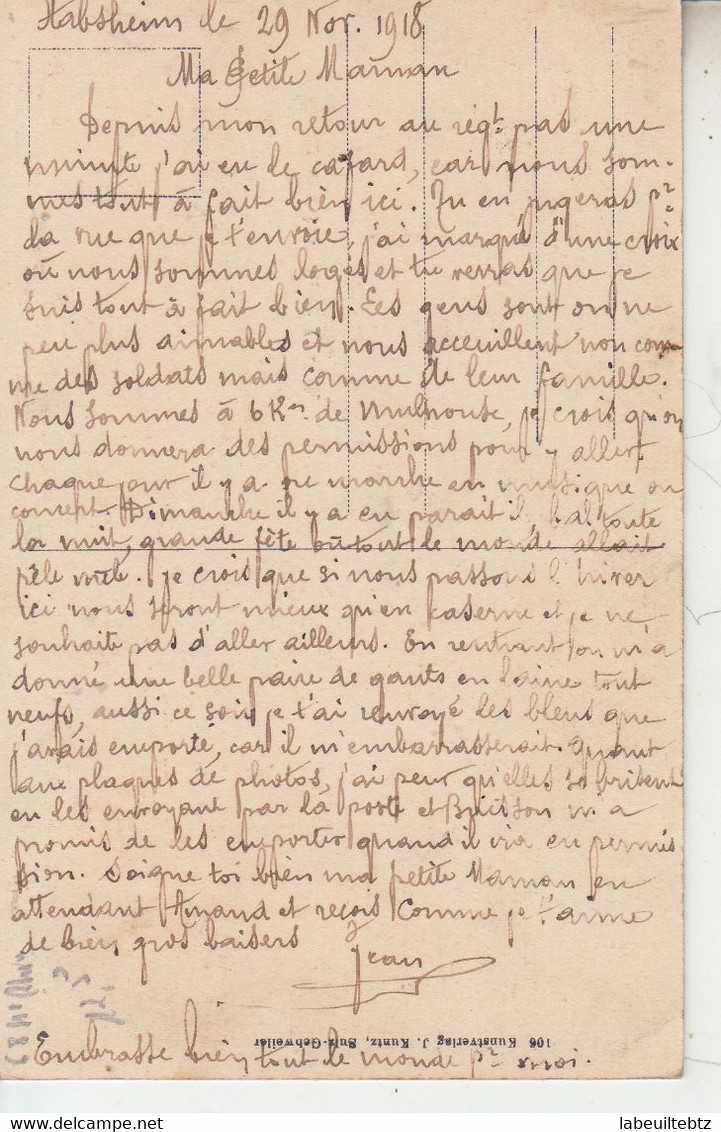 Habsheim le 29 Nov. 1918
Ma Petite Maman
Depuis mon retour au régt. pas une
minute j'ai eu le cafard, car nous som-
mes tout à fait bien ici. Tu en jugeras pr
la vue que je t'envoie, j'ai marqué d'une croix
où nous sommes logés et tu verras que je
suis tout à fait bien. Les gens sont on ne
peu plus aimables et nous acceuillent non com-
me des soldats mais comme de leur famille.
Nous sommes à 6 Km de Mulhouse, je crois qu'on
nous donnera des permissions pour y aller.
Chaque jour il y a une marche en musique ou
concert. Dimanche il y a eu parait il, bal toute
la nuit, grande fête où tout le monde allait
pêle mêle. Je crois que si nous passons l'hiver
ici nous seront mieux qu'en caserne et je ne
souhaite pas d'aller ailleurs. En rentrant on m'a
donné une belle paire de gants en laine tout
neufs, aussi ce soir je t'ai renvoyé les bleus que
j'avais emporté, car il m'embarrasserait. Quant
aux plaques de photos, j'ai peur qu'elles se brisent
en les envoyant par la poste et Buisson m'a
promis de les emporter quand il ira en permis
sion. Soigne toi bien ma petite Maman en
attendant Amand et reçois comme je t'aime
de bien gros baisers
Jean
106 Kunstverlag J. Kuntz, Sulz-Gebweiler
Embrasse bien tout le monde pr moi.
labeuiltebtz